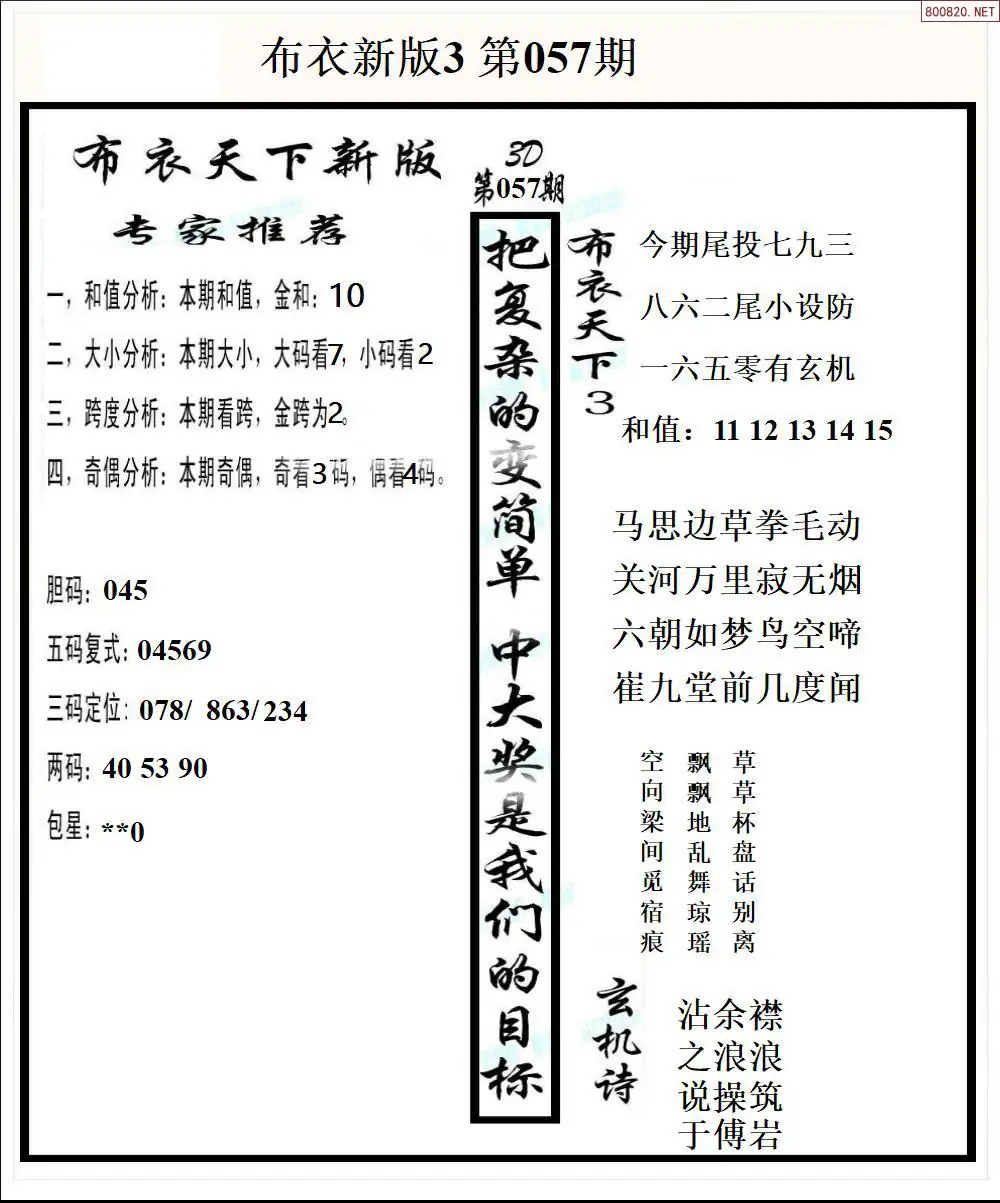 800820.NET
布衣新版3 第057期
布衣天下新版
专家推荐
一，和值分析：本期和值，金和：10
二，大小分析：本期大小，大码看7，小码看2
三，跨度分析：本期看跨，金跨为2。
四，奇偶分析：本期奇偶，奇看3码，偶看4码。
胆码：045
五码复式：04569
三码定位：078/ 863/234
两码：40 53 90
包星：**0
3D
第057期
把复杂的变简单 中大奖是我们的目标
布衣天下3
今期尾投七九三
八六二尾小设防
一六五零有玄机
和值：11 12 13 14 15
马思边草拳毛动
关河万里寂无烟
六朝如梦鸟空啼
崔九堂前几度闻
草草杯盘话别离
飘飘地乱舞琼瑶
空向梁间觅宿痕
玄机诗
沾余襟
之浪浪
说操筑
于傅岩